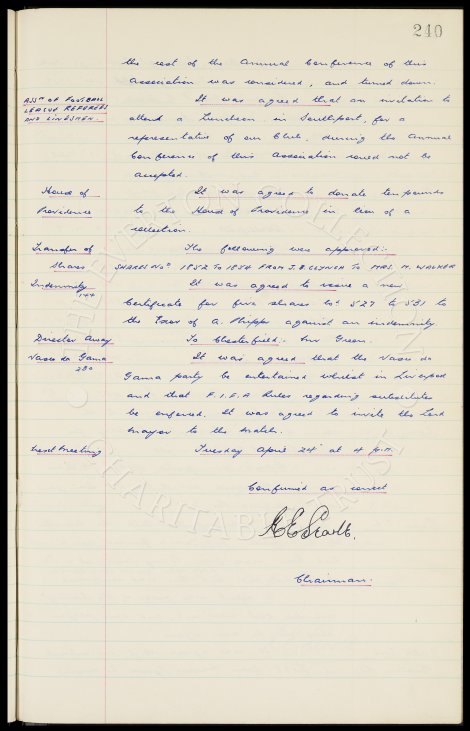 240
the cost of the Annual Conference of this
Association was considered, and turned down.
ASSN OF FOOTBALL
LEAGUE REFEREES
AND LINESMEN.
It was agreed that an invitation to
attend a Luncheon in Southport, for a
representative of our Club, during the Annual
Conference of this Association could not be
accepted.
House of
Providence
It was agreed to donate ten pounds
to the House of Providence in lieu of a
collection.
Transfer of
Shares
The following was approved:-
SHARES NOS 1852 TO 1854 FROM J.B. CLYNCH TO MRS. M. WALKER
Indemnity
144
It was agreed to issue a new
Certificate for five shares Nos 527 to 531 to
the Exor of A. Phipps against an indemnity.
Director Away
To Chesterfield:- Mr Green.
Vasco da Gama
280
It was agreed that the Vasco da
Gama party be entertained whilst in Liverpool
and that F.I.F.A rules regarding substitutes
be enforced. It was agreed to invite the Lord
Mayor to the match.
Next Meeting
Tuesday April 24 at 4 p.m.
Confirmed as correct
Chairman.
THE EVERTON COLLECTION
CHARITABLE TRUST